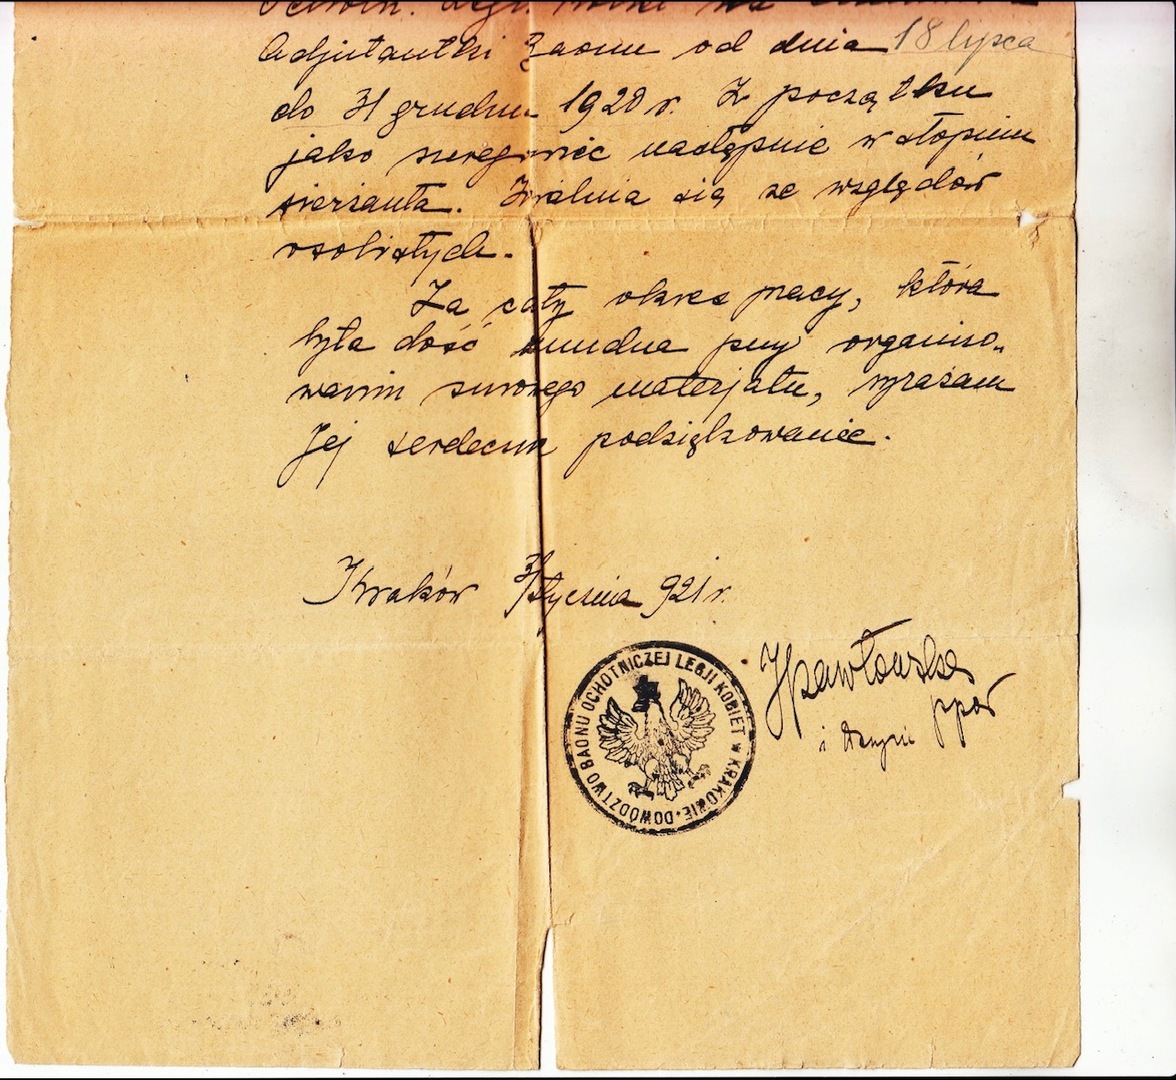 Ochotn. Legji
Adjutantki Baonu od dnia 18 lipca
do 31 grudnia 1920 r. Z początku
jako szeregowiec następnie w stopniu
sierżanta. Zwalnia się ze względów
osobistych.
Za cały okres pracy, która
była dość żmudna przy organizo-
waniu surowego materjału, wyrażam
Jej serdeczne podziękowanie.
Kraków stycznia 921 r.
DOWÓDZTWO BAONU OCHOTNICZEJ LEGJI KOBIET w KRAKOWIE
HPawłowska
ppor